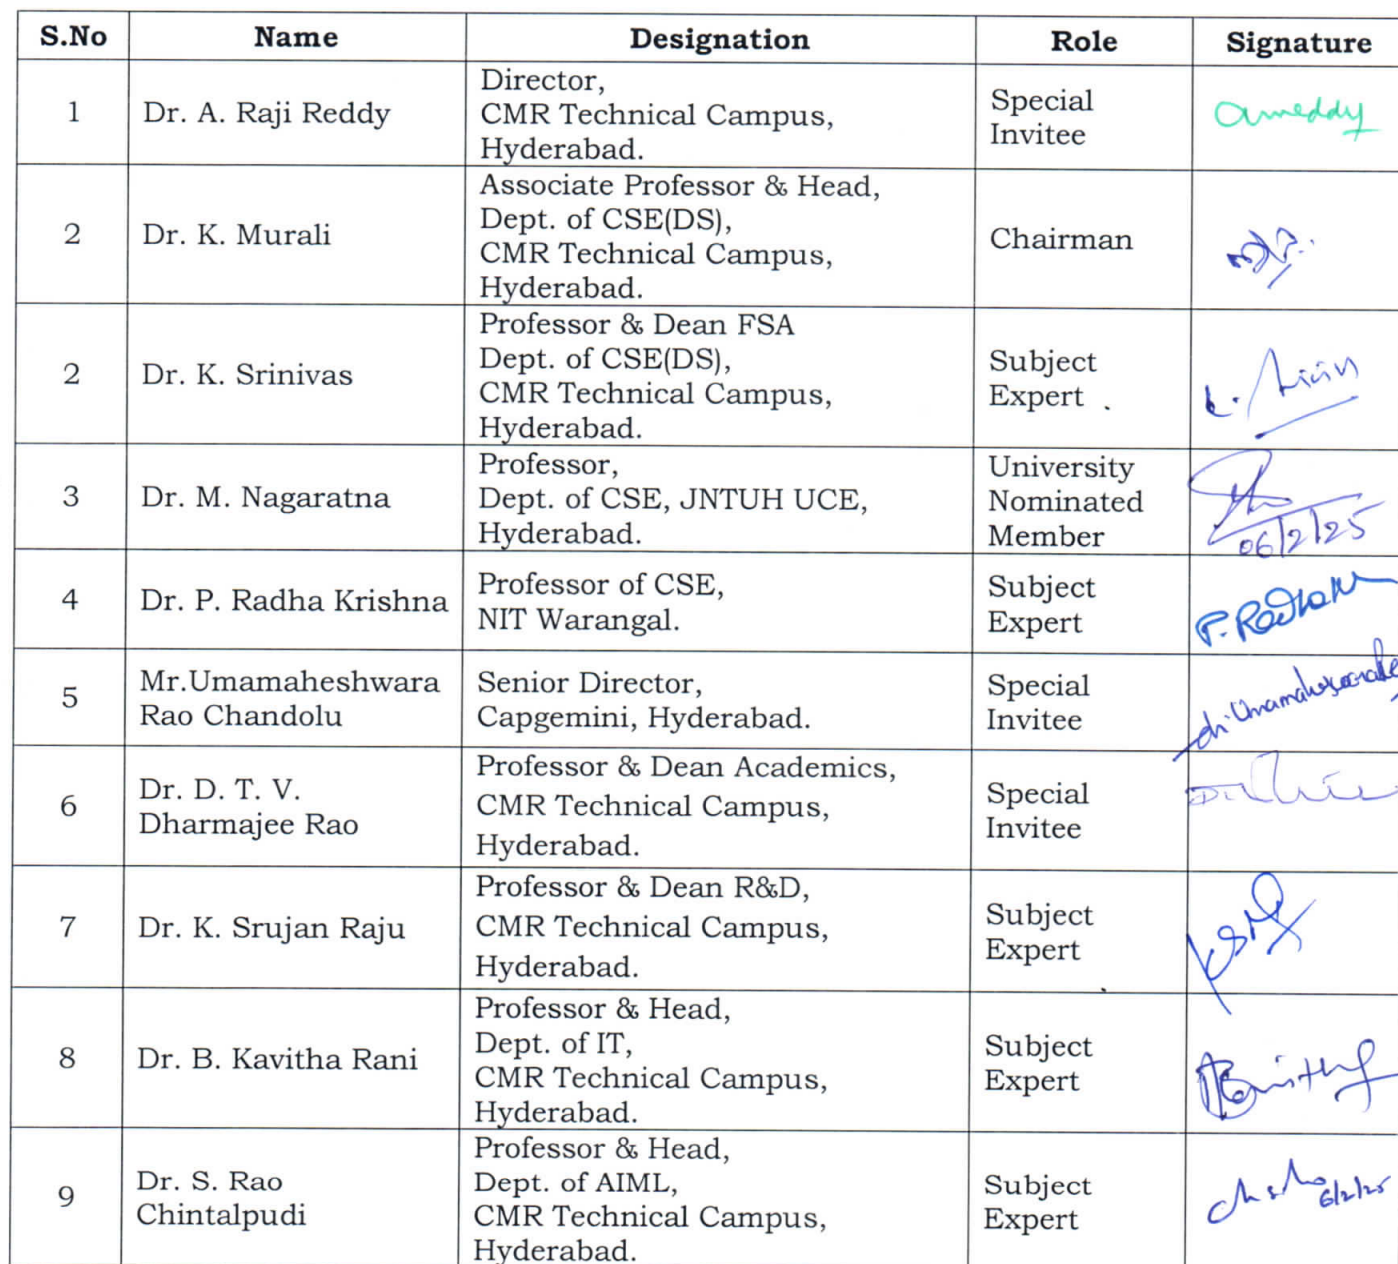 S.No Name Designation Role Signature
1 Dr. A. Raji Reddy Director,
CMR Technical Campus,
Hyderabad. Special
Invitee
2 Dr. K. Murali Associate Professor & Head,
Dept. of CSE(DS),
CMR Technical Campus,
Hyderabad. Chairman
2 Dr. K. Srinivas Professor & Dean FSA
Dept. of CSE(DS),
CMR Technical Campus,
Hyderabad. Subject
Expert
3 Dr. M. Nagaratna Professor,
Dept. of CSE, JNTUH UCE,
Hyderabad. University
Nominated
Member 06/2/25
4 Dr. P. Radha Krishna Professor of CSE,
NIT Warangal. Subject
Expert
5 Mr.Umamaheshwara
Rao Chandolu Senior Director,
Capgemini, Hyderabad. Special
Invitee
6 Dr. D. T. V.
Dharmajee Rao Professor & Dean Academics,
CMR Technical Campus,
Hyderabad. Special
Invitee
7 Dr. K. Srujan Raju Professor & Dean R&D,
CMR Technical Campus,
Hyderabad. Subject
Expert
8 Dr. B. Kavitha Rani Professor & Head,
Dept. of IT,
CMR Technical Campus,
Hyderabad. Subject
Expert
9 Dr. S. Rao
Chintalpudi Professor & Head,
Dept. of AIML,
CMR Technical Campus,
Hyderabad. Subject
Expert 6/2/25